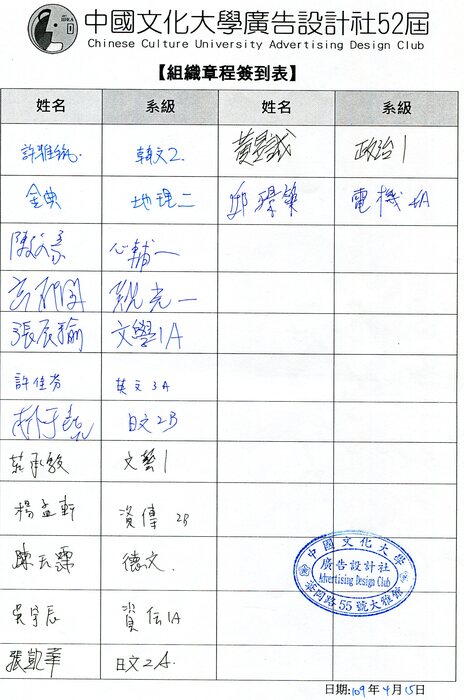 中國文化大學廣告設計社52屆
Chinese Culture University Advertising Design Club
【組織章程簽到表】
姓名 系級 姓名 系級
許雅 韓文2. 黃 誠 政治1
金典 地理二 邱 電機 A
陳 心輔一
觀光一
張辰瑜 文學1A
許佳芳 英文3A
日文2B
莊承毅 文藝1
楊孟軒 資傳 2B
陳 霖 德文.
吳宇辰 資傳1A
張凱華 日文2A.
中國文化大學
廣告設計社
Advertising Design Club
華岡路55號大雅館
日期:109年4月15日